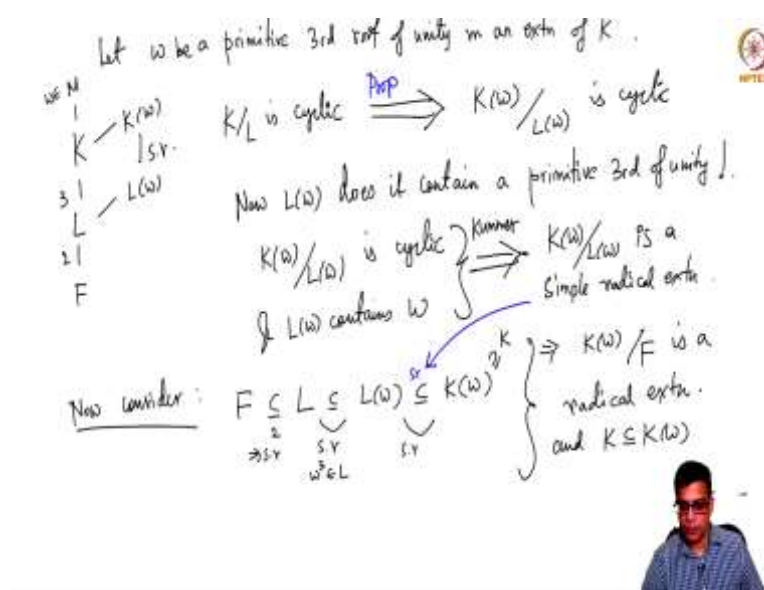 Let ω be a primitive 3rd root of unity in an extn of K.
NPTEL
ω∈ M
K K(ω)
s.r.
3
L L(ω)
2
F
K/L is cyclic Prop ⟹ K(ω)/L(ω) is cyclic
Now L(ω) does it contain a primitive 3rd of unity!
K(ω)/L(ω) is cyclic
& L(ω) contains ω
Kummer ⟹ K(ω)/L(ω) is a
simple radical extn.
Now consider: F ⊆ L ⊆ L(ω) ⊆ K(ω) ⊇ K
sr
2 ⇒ s.r s.r s.r
ω³∈L
⇒ K(ω)/F is a
radical extn.
and K ⊆ K(ω)